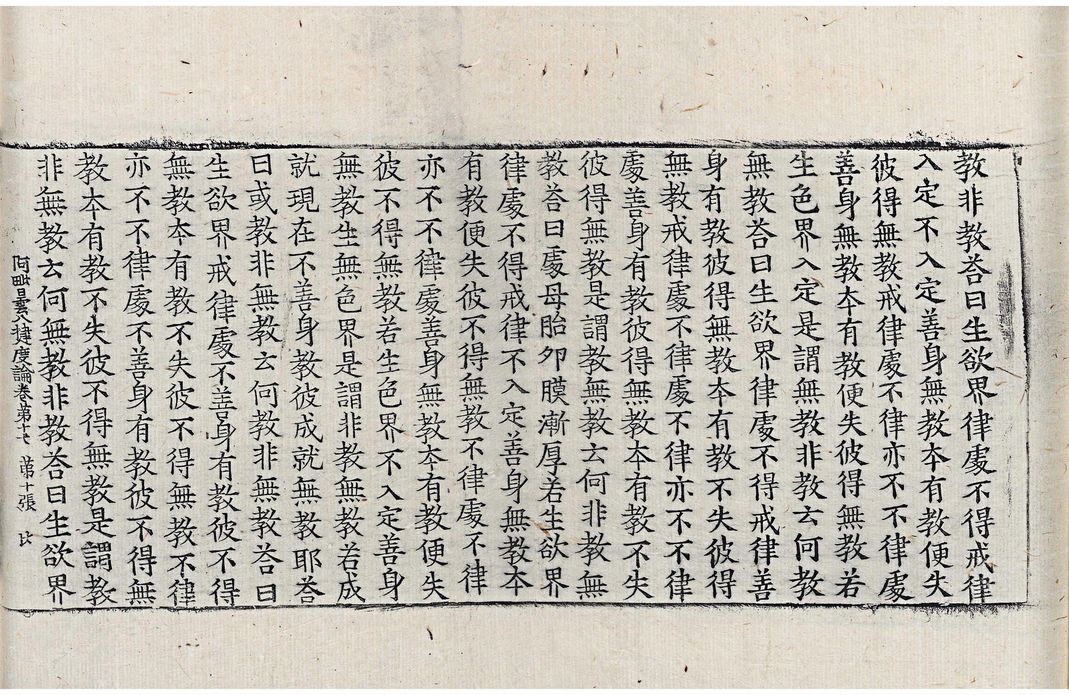 教非教荅曰生欲界律處不得戒律
入定不入定善身無教夲有教便失
彼得無教戒律處不律亦不不律處
善身無教夲有教便失彼得無教若
生色界入定是謂無教非教云何教
無教荅曰生欲界律處不得戒律善
身有教彼得無教夲有教不失彼得
無教戒律處不律處不律亦不不律
處善身有教彼得無教夲有教不失
彼得無教是謂教無教云何非教無
教荅曰處母胎卵膜漸厚若生欲界
律處不得戒律不入定善身無教夲
有教便失彼不得無教不律處不律
亦不不律處善身無教夲有教便失
彼不得無教若生色界不入定善身
無教生無色界是謂非教無教若成
就現在不善身教彼成就無教耶荅
曰或教非無教云何教非無教荅曰
生欲界戒律處不善身有教彼不得
無教夲有教不失彼不得無教不律
亦不不律處不善身有教彼不得無
教夲有教不失彼不得無教是謂教
非無教云何無教非教荅曰生欲界
阿毗曇八揵度論卷第十 第十張 比